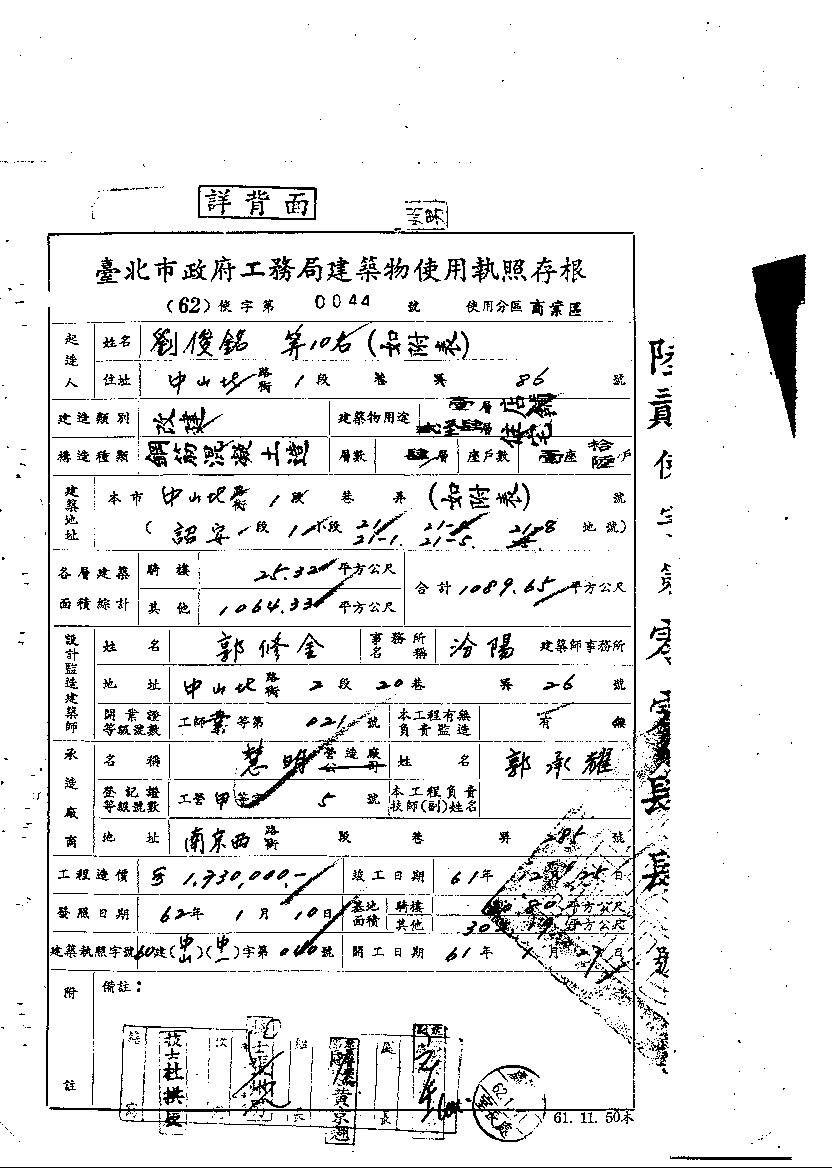 詳背面
臺北市政府工務局建築物使用執照存根
(62)使字第 0044 號 使用分區 商業區
起造人 姓名 劉俊銘 等10名(如附表)
住址 中山北 路街 1 段 巷 弄 86 號
建造類別 改建 建築物用途 層 店舖
層 住宅
構造種類 鋼筋混凝土造 層數 肆 層 座戶數 壹 座 拾陸 戶
建築地址 本市 中山北 路街 1 段 巷 弄 (如附表) 號
( 詔安 段 1 小段 21 21-4 21-8 地號)
21-1 21-5
各層建築面積綜計 騎樓 25.32 平方公尺 合計 1089.65 平方公尺
其他 1064.33 平方公尺
設計監造建築師 姓名 郭修金 事務所名稱 汾陽 建築師事務所
地址 中山北 路街 2 段 20 巷 弄 26 號
開業證等級號數 工師 業 等第 021 號 本工程有無負責監造 有 無
承造廠商 名稱 慧明 營造廠公司 姓名 郭承耀
登記證等級號數 工營 甲 等 5 號 本工程負責技師(副)姓名
地址 南京西 路街 段 巷 弄 285 號
工程造價 1,730,000.- 竣工日期 61年 12月 25日
發照日期 62年 1月 10日 基地面積 騎樓 80 平方公尺
其他 平方公尺
建築執照字號 60建(中山)(中一)字第 040 號 開工日期 61年 1月 27日
附註 備註:
技士杜拱辰
黃京翹
61. 11. 50本